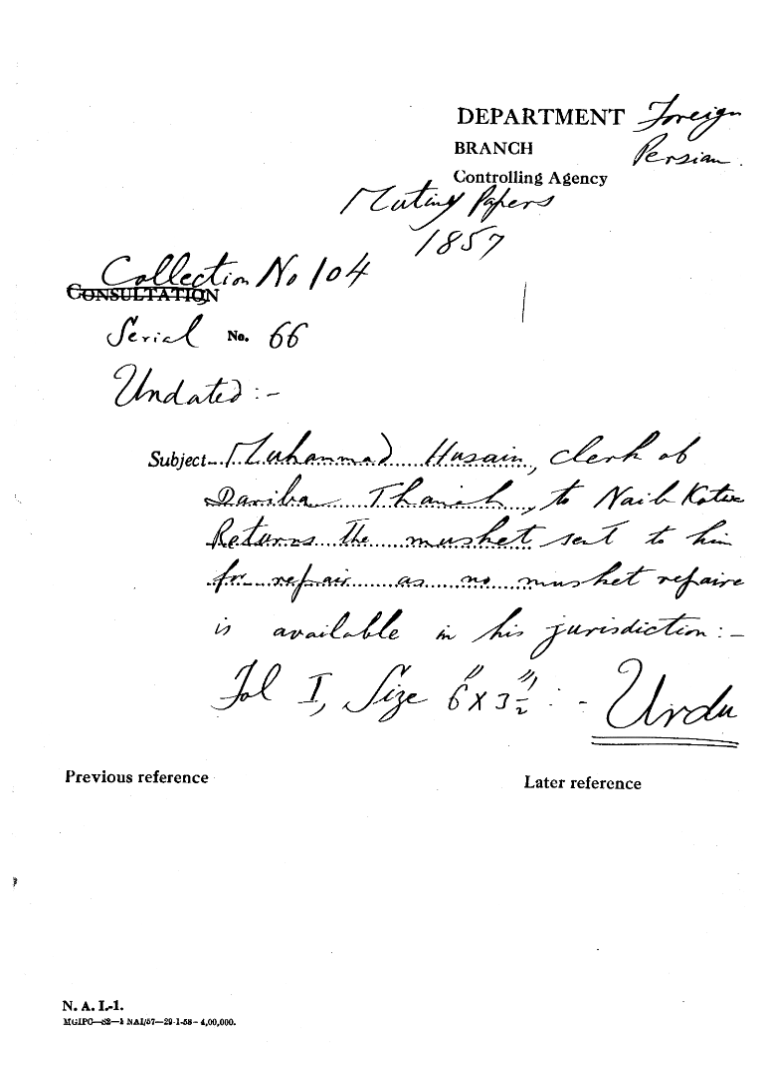 DEPARTMENT Foreign
BRANCH Persian.
Controlling Agency
Mutiny Papers
1857
Collection No 104
CONSULTATION
Serial No. 66
Undated :-
Subject Muhammad Husain, clerk of
Dariba Thanah, to Naib Kotwa
Returns the musket sent to him
for repair as no musket repaire
is available in his jurisdiction :-
Fol I, Size 6" x 3½" : - Urdu
Previous reference
Later reference
N. A. I.-1.
MGIPC—S2—1 NAI/57—29-1-58— 4,00,000.